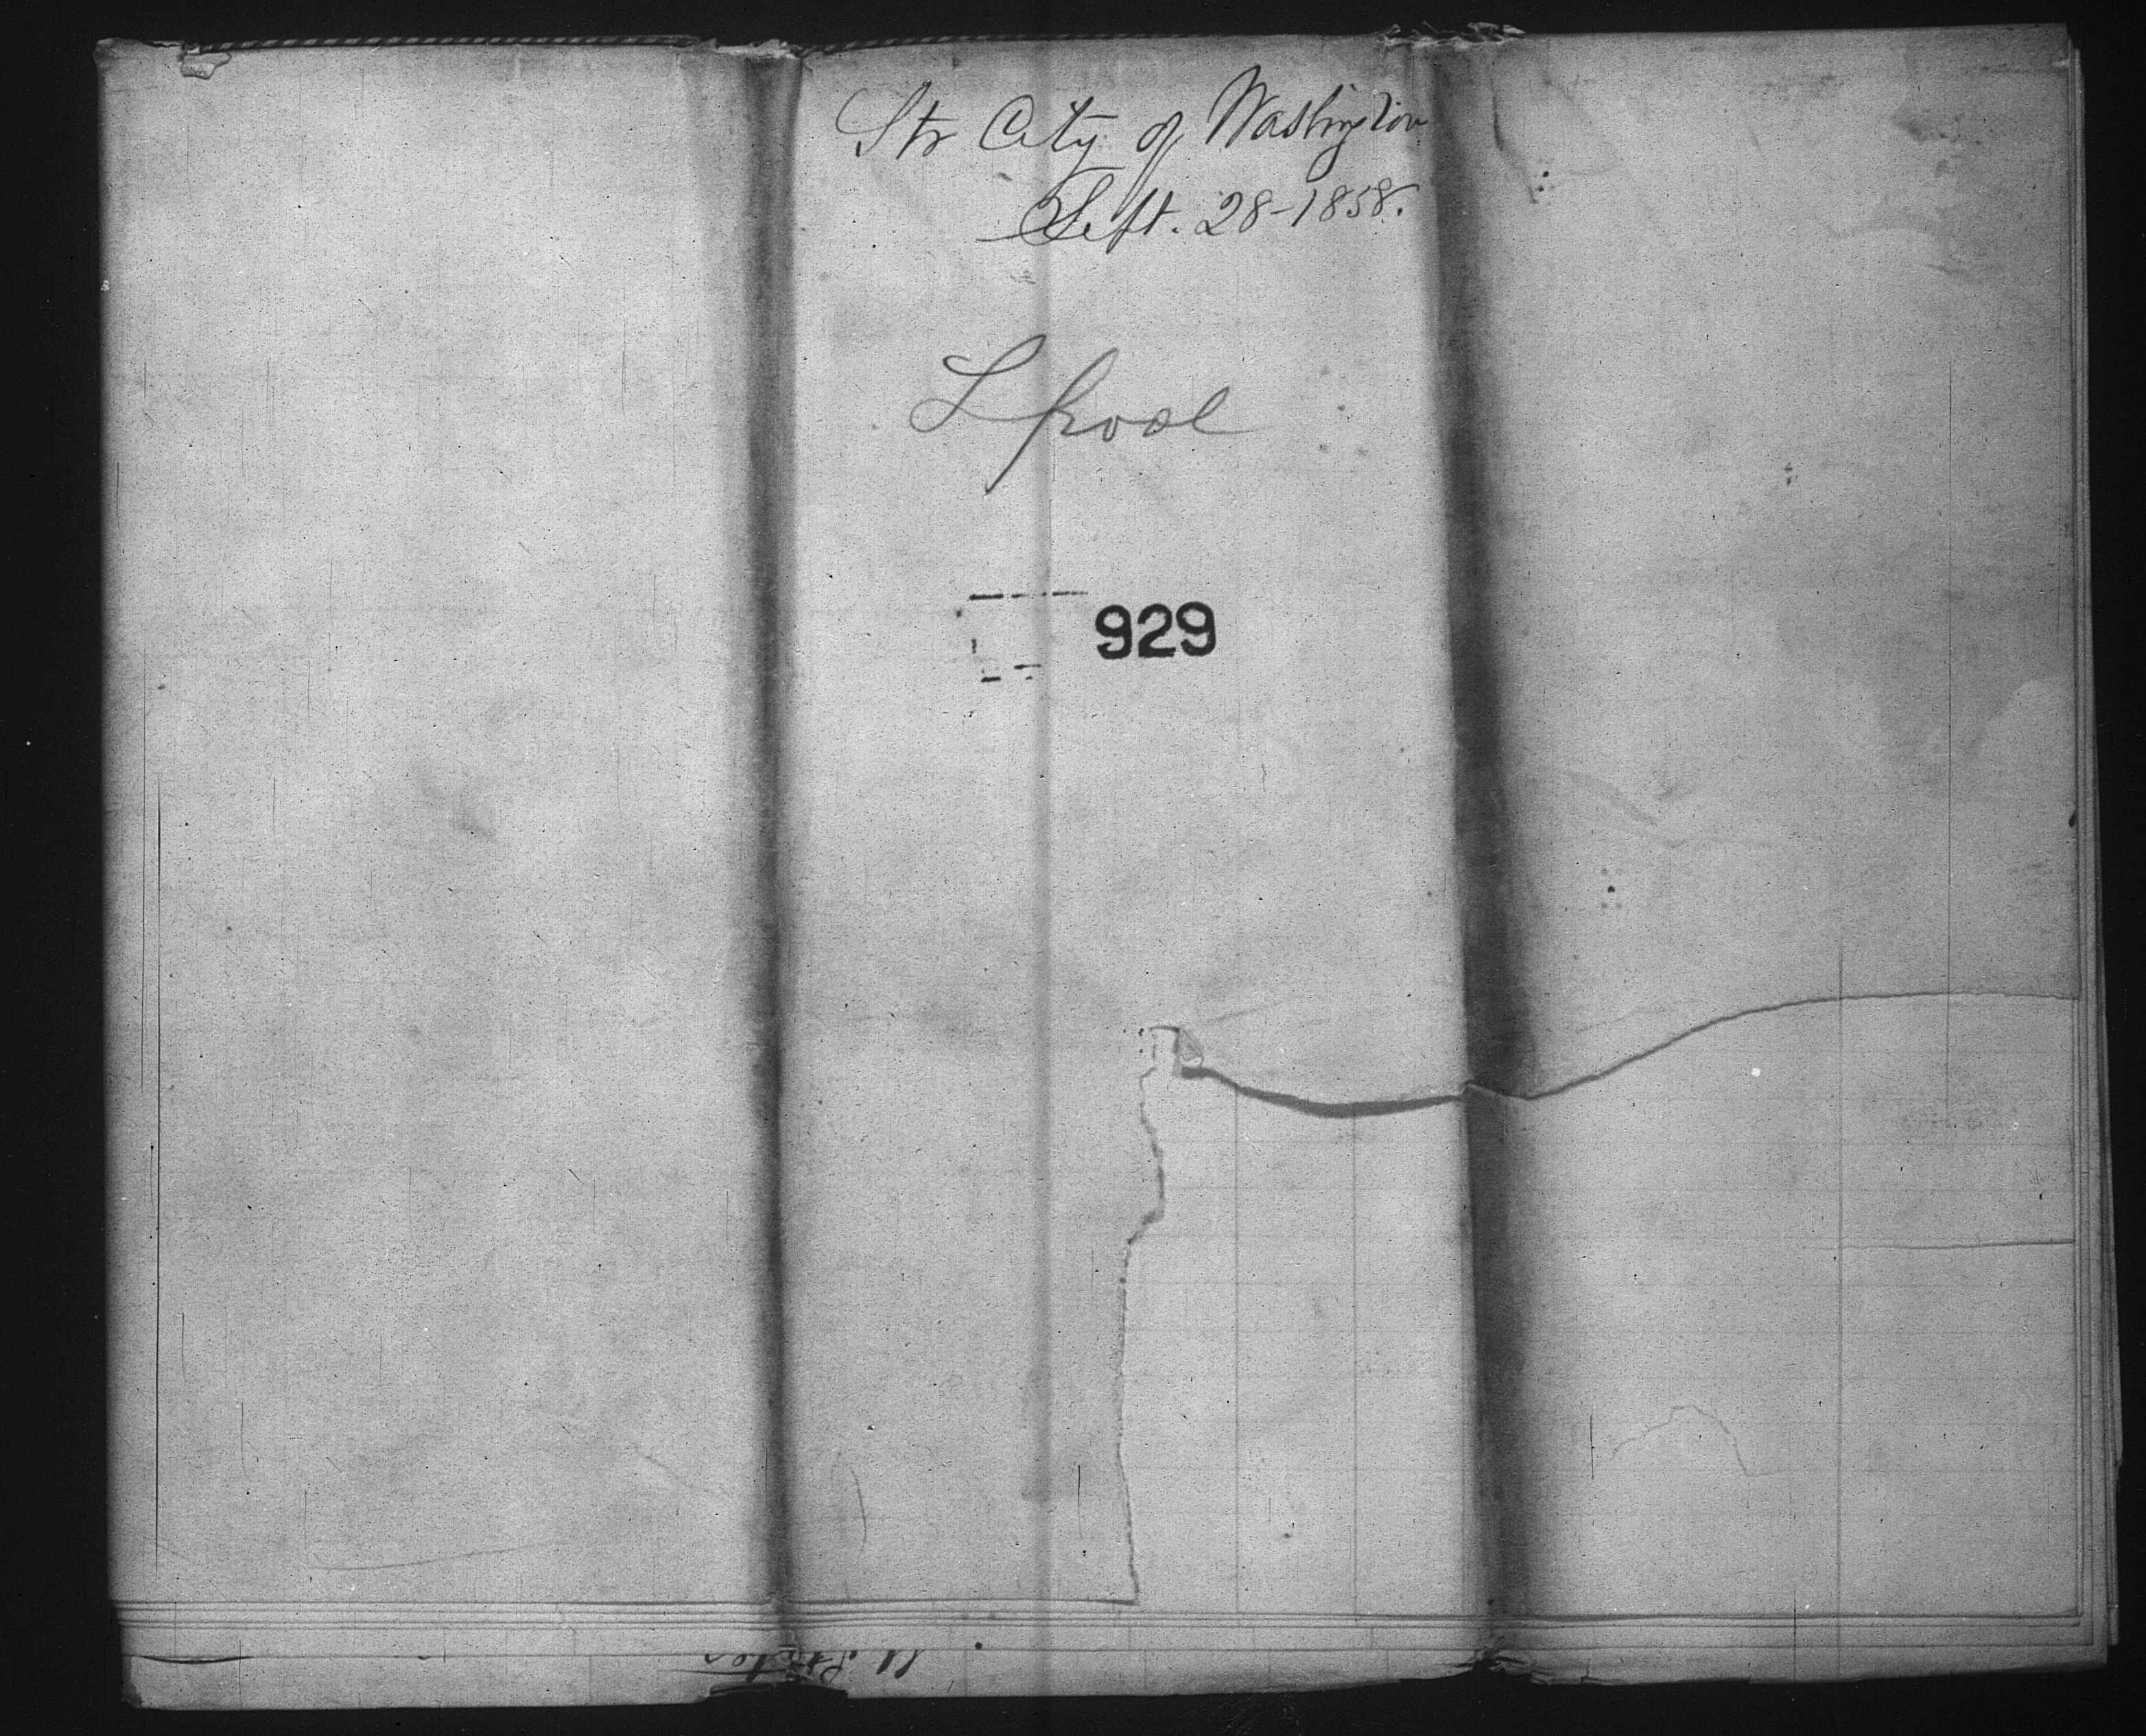 Str City of Washington
Sept. 28-1858.
L pool
929